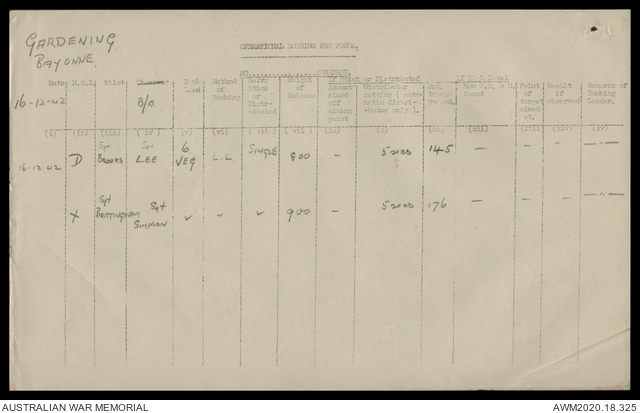 GARDENING.
BAYONNE.
OPERATIONAL BOMBING PRO FORMA.
NO. SQUADRON.
Date M.S.I. Pilot Observer B/A. Bomb Load Method of Bombing Salvo Stick or Distr-ibuted Height of Release If Stick or Distributed Amount aimed off aiming point Distributor setting (auto matic distri-butor only). Ground If High Level used Point of target aimed at. Result if observed Remarks of Bombing Leader.
16-12-42
(i) (ii) (iii) (iv) (v) (vi) (vii) (viii) (ix) (x) (xi) (xii) (xiii) (xiv) (xv)
16-12 42 D Sgt BROOKS Sgt LEE 6 VEG L.L. SINGLE 800 - 5 secs 145 - - - -
X Sgt BRITTINGHAM Sgt SIMPSON ✓ ✓ ✓ 900 - 5 secs 176 - - - -
AUSTRALIAN WAR MEMORIAL AWM2020.18.325